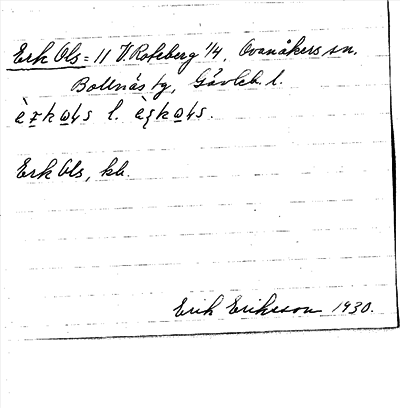 Erk Ols = 11 V. Roteberg 1/4, Ovanåkers sn.
Bollnäs tg, Gävleb. l.
l.
Erk Ols, kb.
Erik Eriksson 1930.